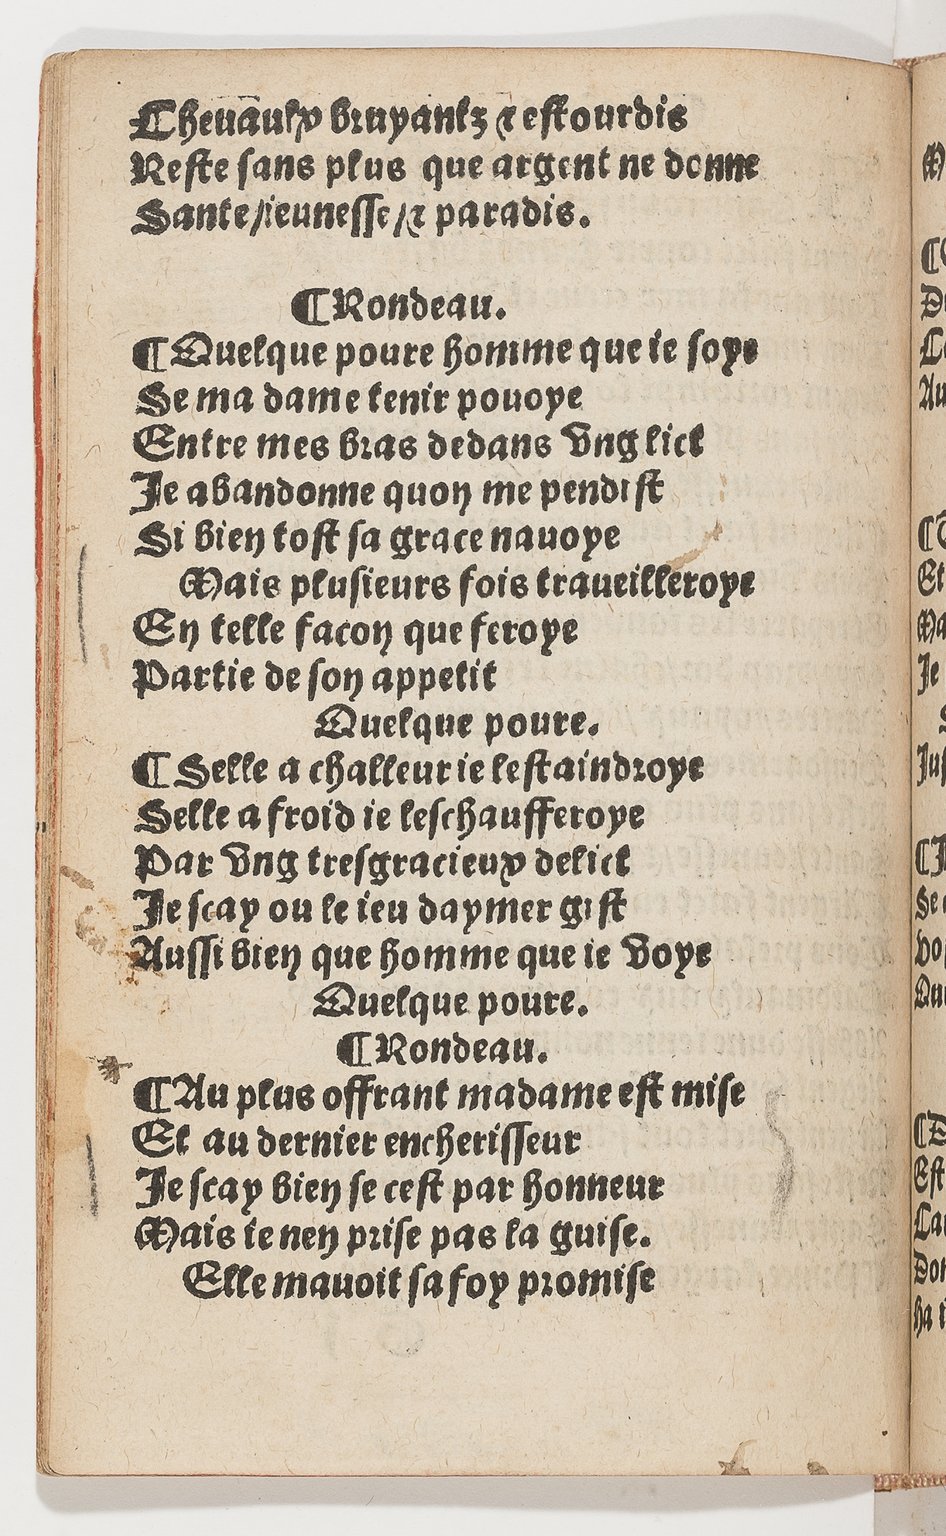 Cheuāulx bruyantz ⁊ estourdis
Reste sans plus que argent ne donne
Sante/ieunesse/⁊ paradis.
¶Rondeau.
¶Quelque poure homme que ie soye
Se ma dame tenir pouoye
Entre mes bras dedans vng lict
Je abandonne quon me pendist
Si bien tost sa grace nauoye
Mais plusieurs fois traueilleroye
En telle facon que feroye
Partie de son appetit
Quelque poure.
¶Selle a challeur ie lestaindroye
Selle a froid ie leschaufferoye
Par vng tresgracieux delict
Je scay ou le ieu daymer gist
Aussi bien que homme que ie voye
Quelque poure.
¶Rondeau.
¶Au plus offrant madame est mise
Et au dernier encherisseur
Je scay bien se cest par honneur
Mais ie nen prise pas la guise.
Elle mauoit sa foy promise